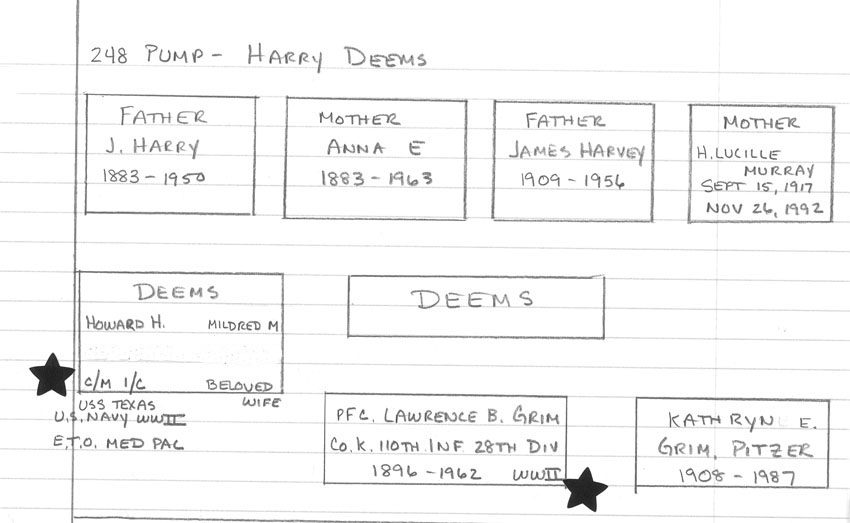 248 PUMP - HARRY DEEMS
FATHER
J. HARRY
1883 - 1950
MOTHER
ANNA E
1883 - 1963
FATHER
JAMES HARVEY
1909 - 1956
MOTHER
H. LUCILLE
MURRAY
SEPT 15, 1917
NOV 26, 1992
DEEMS
HOWARD H. MILDRED M
C/M 1/C BELOVED
USS TEXAS WIFE
U.S. NAVY WWII
E.T.O. MED PAC
DEEMS
PFC. LAWRENCE B. GRIM
CO. K. 110TH INF 28TH DIV
1896 - 1962 WWII
KATHRYN E.
GRIM, PITZER
1908 - 1987